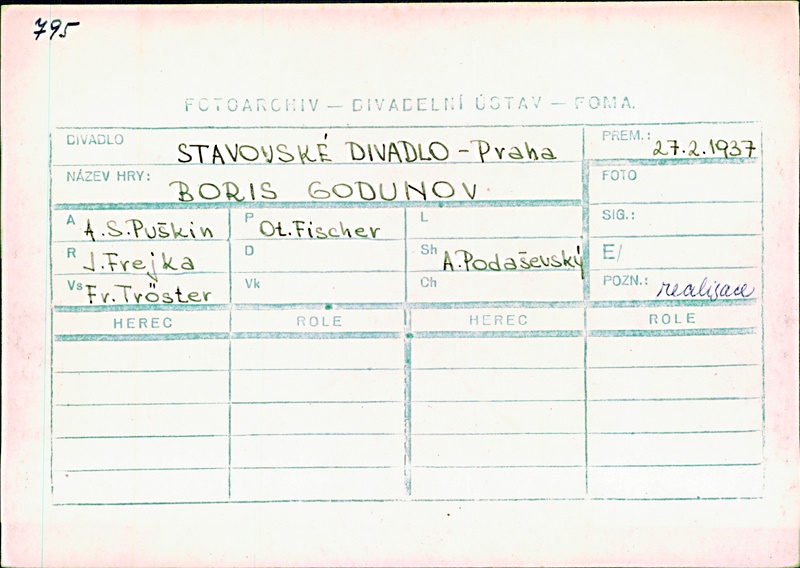 795
FOTOARCHIV — DIVADELNÍ ÚSTAV — FOMA.
DIVADLO STAVOVSKÉ DIVADLO - Praha
PREM.: 27.2.1937
NÁZEV HRY: BORIS GODUNOV
FOTO
A A.S.Puškin P Ot.Fischer L
SIG.:
R J.Frejka D Sh A.Podaševský
E/
Vs Fr.Tröster Vk Ch
POZN.: realizace
HEREC ROLE HEREC ROLE